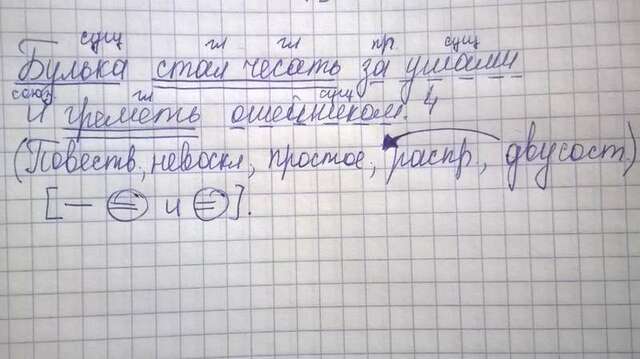 сущ гл гл пр. сущ
Булька стал чесать за ушами
союз гл сущ
и греметь ошейником. 4
(Повеств., невоскл, простое, распр., двусост)
[— = и =].